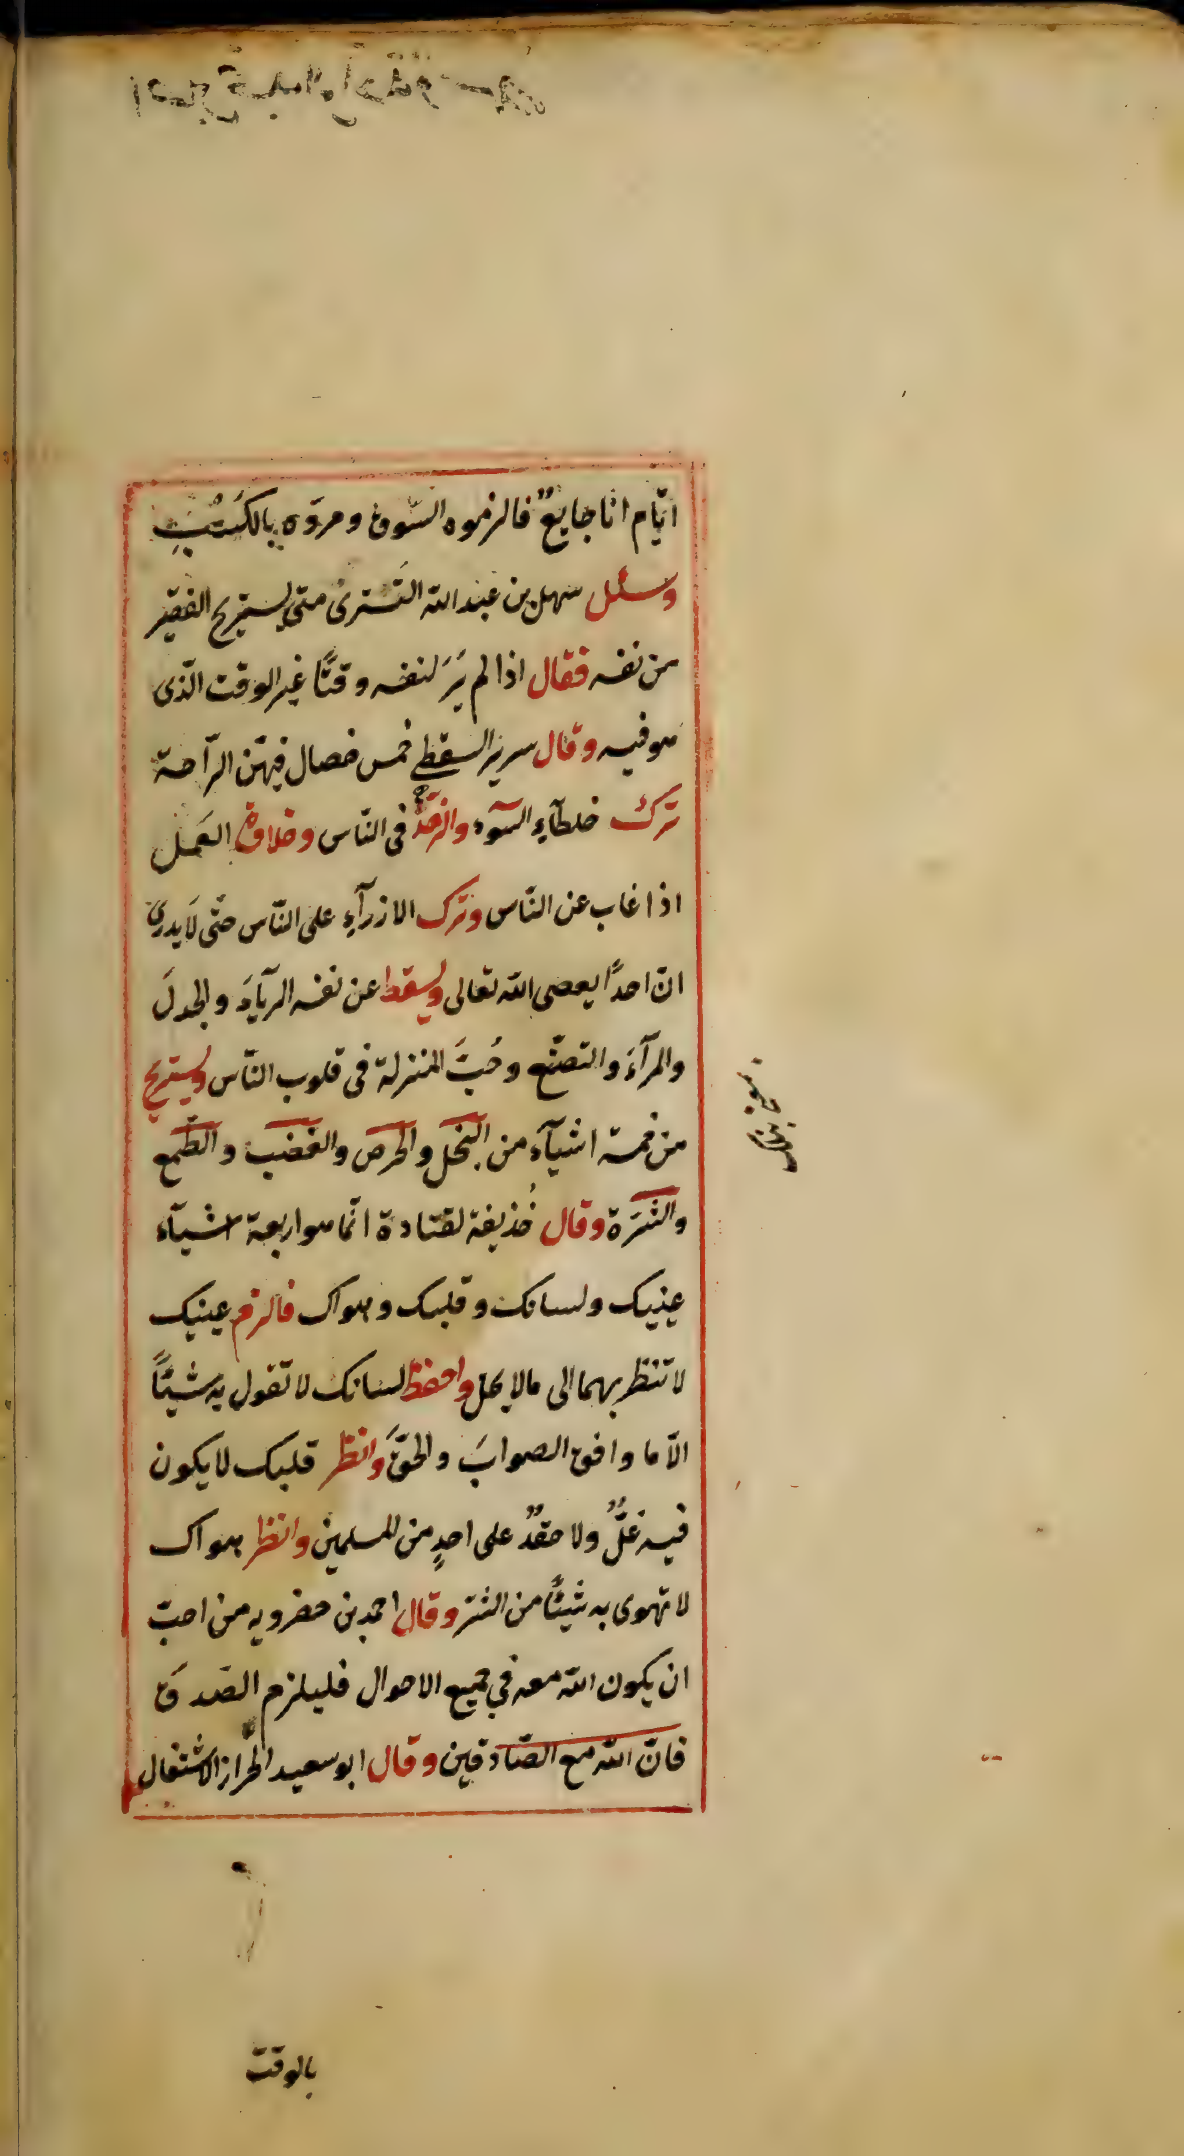 ايّام انا جايعٌ فالزموه السّوق ومروّه بالكَسْبِ
وسئل سهل بن عبد الله التَستری متی يستريح الفقير
من نفسه فقال اذا لم يَرَ لنفسه وقتًا غير الوقت الّذی
هو فيه وقال سرير السقطي خمس خصال فيهّن الرّاحة
ترك خلطآءِ السّوء والزهّد فی النّاس وحلاوة العَمل
اذا غاب عن النّاس وترك الازرآءِ علی النّاس حتّی لَا يدریَ
انّ احدًا يعصی الله تعالی ويسقط عن نفسه الريآءَ والجدلَ
والمرآءَ والتصنّع وحُبَّ المنزلة فی قلوب النّاس ويستريح
من خمسة اشيآء من البخل والحرص والغضب والطّمع
والشَرَه وقال حُذيفة لقتادة انّما هو اربعة اشيآء
عينيك ولسانك وقلبك وهواك فالزم عينيك
لا تنظر بهما الی مالا يحل واحفظ لسانك لا تقول به شيئًا
الّا ما وافق الصوابَ والحقَّ وانظر قلبك لا يكون
فيه غلٌّ ولا حقدٌ علی احدٍ من المسلمين وانظر هواك
لا تهوی به شيئًا من الشّر وقال احمد بن حضرويه من احبّ
ان يكون الله معه في جميع الاحوال فليلزم الصّدقَ
فانّ الله مع الصّادقين وقال ابو سعيد الخراز الاشتغال
بالوقت